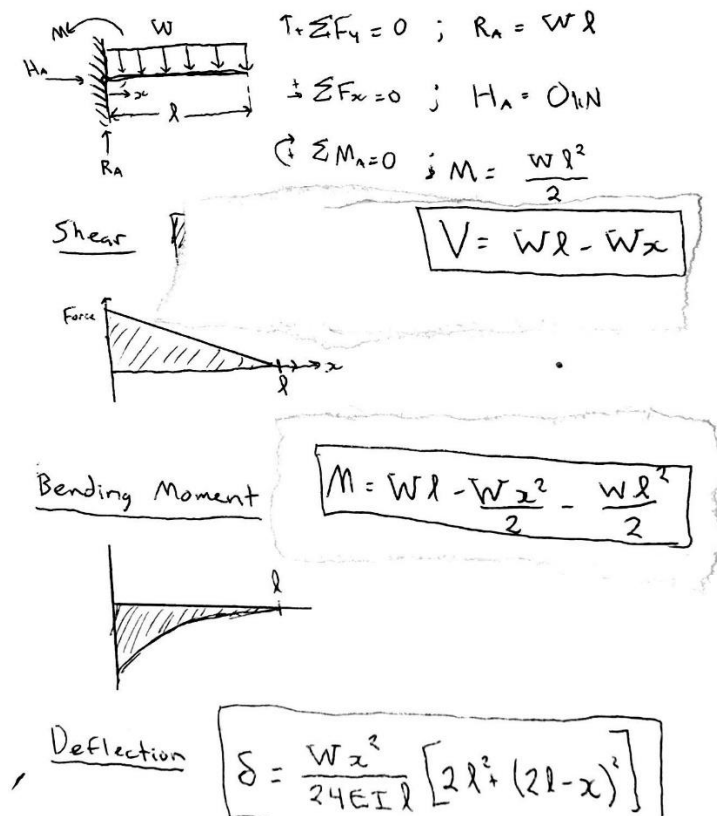 M W ↑+ ΣFy = 0 ; RA = Wl
HA x +→ ΣFx = 0 ; HA = 0kN
l
RA ↻+ ΣMA = 0 ; M = Wl²/2
Shear V = Wl - Wx
Force
x
l
Bending Moment M = Wl - Wx²/2 - Wl²/2
l
Deflection δ = Wx²/24EIl [2l² + (2l-x)²]